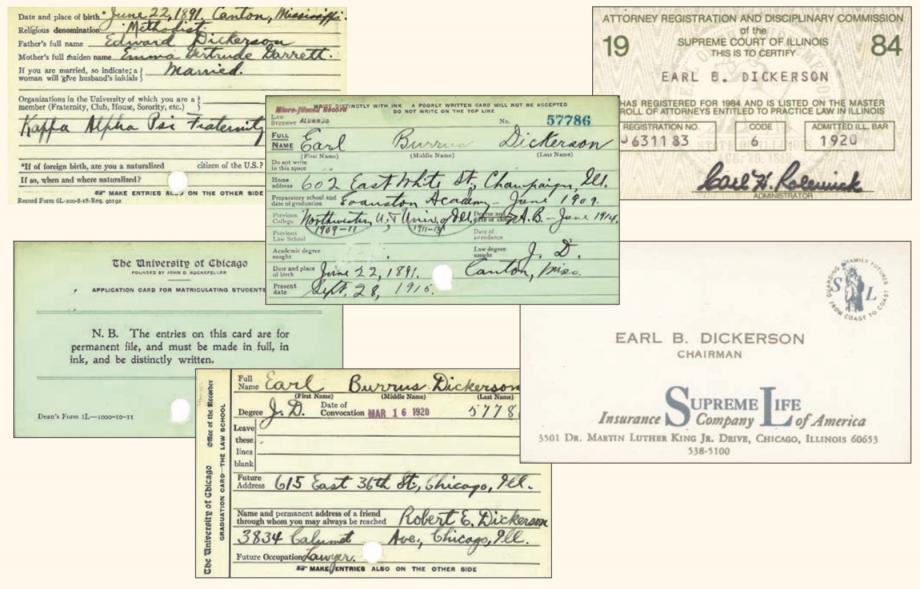 Date and place of birth June 22, 1891, Canton, Mississippi
Religious denomination Methodist
Father's full name Edward Dickerson
Mother's full maiden name Emma Gertrude Garrett.
If you are married, so indicate; a
woman will give husband's initials } Married.
Organizations in the University of which you are a
member (Fraternity, Club, House, Sorority, etc.)
Kappa Alpha Psi Fraternity
*If of foreign birth, are you a naturalized citizen of the U.S.?
If so, when and where naturalized?
MAKE ENTRIES ALSO ON THE OTHER SIDE
ATTORNEY REGISTRATION AND DISCIPLINARY COMMISSION
of the
19 SUPREME COURT OF ILLINOIS 84
THIS IS TO CERTIFY
EARL B. DICKERSON
HAS REGISTERED FOR 1984 AND IS LISTED ON THE MASTER
ROLL OF ATTORNEYS ENTITLED TO PRACTICE LAW IN ILLINOIS
REGISTRATION NO. CODE ADMITTED ILL. BAR
631183 6 1920
ADMINISTRATOR
WRITE DISTINCTLY WITH INK A POORLY WRITTEN CARD WILL NOT BE ACCEPTED
DO NOT WRITE ON THE TOP LINE
Micro-filmed Record
Law
Student ALUMNUS No. 57786
FULL
NAME Earl Burrus Dickerson
(First Name) (Middle Name) (Last Name)
Do not write
in this space
Home
address 602 East White St., Champaign, Ill.
Preparatory school and
date of graduation Evanston Academy - June 1909.
Previous
College Northwestern U.; Univ. of Ill. A.B. - June 1914.
1909-11 1911-13
Previous
Law School Date of
attendance
Academic degree
sought Law degree
sought J. D.
Date and place
of birth June 22, 1891. Canton, Miss.
Present
date Sept. 28, 1915.
The University of Chicago
FOUNDED BY JOHN D. ROCKEFELLER
APPLICATION CARD FOR MATRICULATING STUDENTS
N. B. The entries on this card are for
permanent file, and must be made in full, in
ink, and be distinctly written.
Dean's Form 1L—1000-10-11
GUARDING FAMILY FUTURES
FROM COAST TO COAST
S L
EARL B. DICKERSON
CHAIRMAN
SUPREME LIFE
Insurance Company of America
3501 DR. MARTIN LUTHER KING JR. DRIVE, CHICAGO, ILLINOIS 60653
538-5100
The University of Chicago Office of the Recorder
GRADUATION CARD—THE LAW SCHOOL
Full
Name Earl Burrus Dickerson
(First Name) (Middle Name) (Last Name)
Degree J. D. Date of
Convocation MAR 16 1920 5778
Leave
these
lines
blank
Future
Address 615 East 36th St., Chicago, Ill.
Name and permanent address of a friend
through whom you may always be reached Robert E. Dickerson
3834 Calumet Ave., Chicago, Ill.
Future Occupation Lawyer.
MAKE ENTRIES ALSO ON THE OTHER SIDE